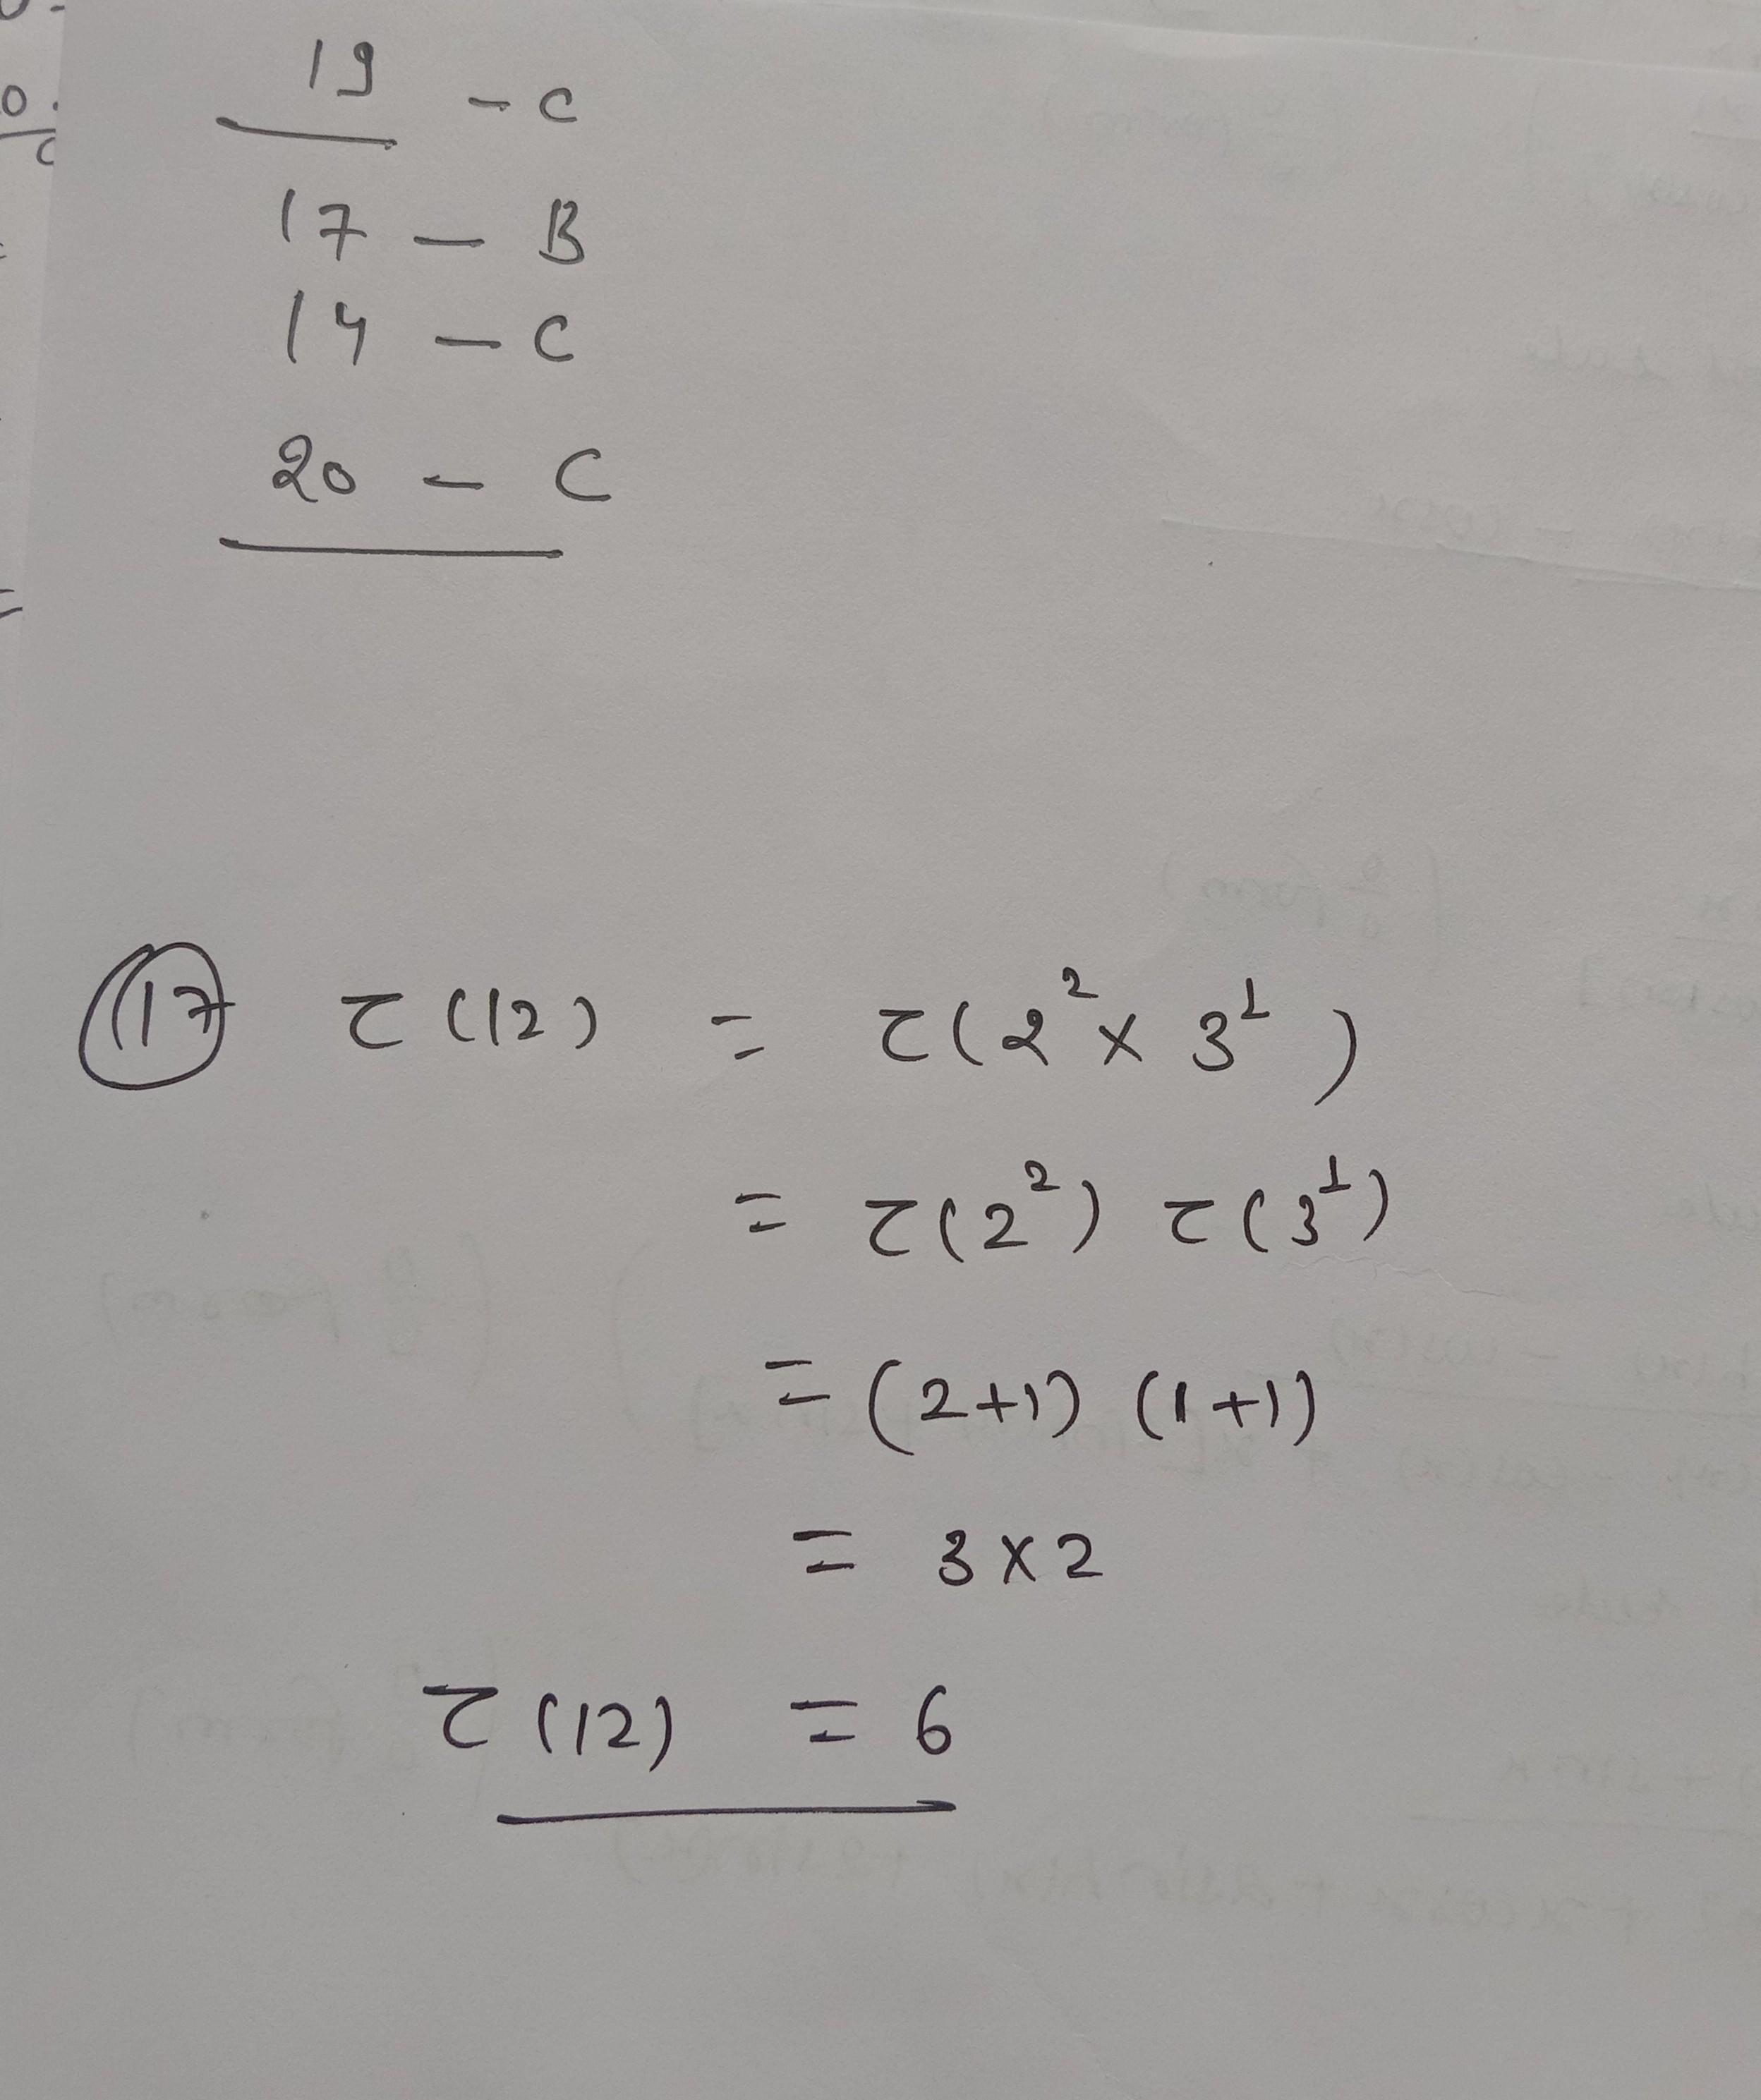 19 - C
17 - B
14 - C
20 - C
17 τ(12) = τ(2² × 3¹)
= τ(2²) τ(3¹)
= (2+1) (1+1)
= 3×2
τ(12) = 6